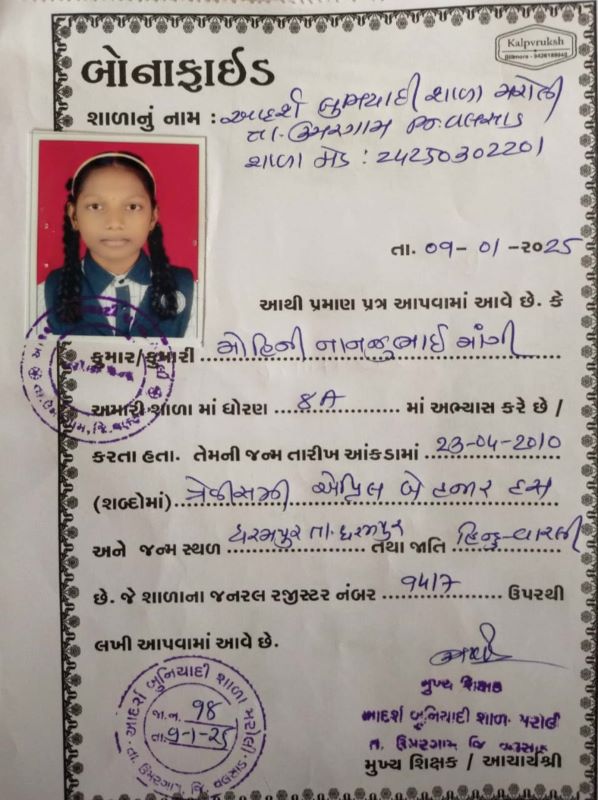 Kalpvruksh
બોનાફાઇડ
શાળાનું નામ : આદર્શ બુનિયાદી શાળા મરોલી
તા. ઉમરગામ જિ. વલસાડ
શાળા કોડ : 24250302201
તા. 09-01-૨૦25
આથી પ્રમાણ પત્ર આપવામાં આવે છે. કે
કુમાર/કુમારી મોહિની નાનજુભાઈ
અમારી શાળા માં ધોરણ 8A માં અભ્યાસ કરે છે /
કરતા હતા. તેમની જન્મ તારીખ આંકડામાં 23-04-2010
(શબ્દોમાં) ત્રેવીસમી એપ્રિલ બે હજાર દસ
અને જન્મ સ્થળ ધરમપુર તા. ધરમપુર તથા જાતિ હિન્દુ-વારલી
છે. જે શાળાના જનરલ રજીસ્ટર નંબર 9417 ઉપરથી
લખી આપવામાં આવે છે.
આદર્શ બુનિયાદી શાળા મરોલી
જા.નં. 98
તા. 9-1-25
મુખ્ય શિક્ષક
આદર્શ બુનિયાદી શાળા મરોલી
તા. ઉમરગામ જિ વલસાડ
મુખ્ય શિક્ષક / આચાર્યશ્રી